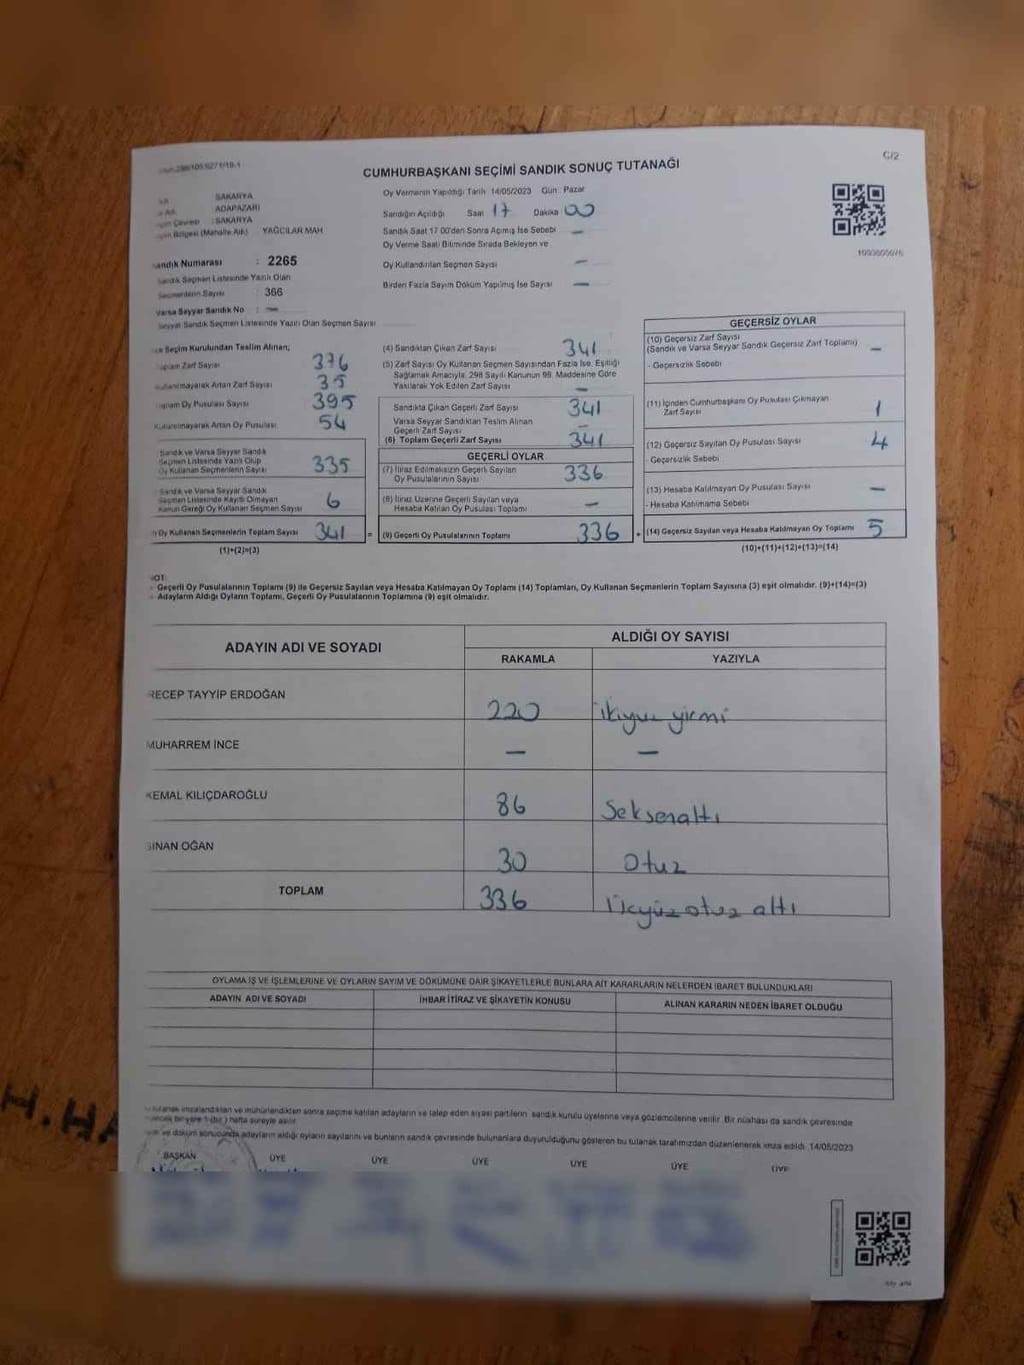 C/2
CUMHURBAŞKANI SEÇİMİ SANDIK SONUÇ TUTANAĞI
SAKARYA
ADAPAZARI
Çevresi : SAKARYA
Bölgesi (Mahalle Adı) YAĞCILAR MAH
Sandık Numarası : 2265
Sandık Seçmen Listesinde Yazılı Olan
Seçmenlerin Sayısı : 366
Varsa Seyyar Sandık No : —
Seyyar Sandık Seçmen Listesinde Yazılı Olan Seçmen Sayısı
Oy Vermenin Yapıldığı Tarih 14/05/2023 Gün : Pazar
Sandığın Açıldığı Saat 17 Dakika 00
Sandık Saat 17.00'den Sonra Açılmış İse Sebebi —
Oy Verme Saati Bitiminde Sırada Bekleyen ve
Oy Kullandırılan Seçmen Sayısı —
Birden Fazla Sayım Döküm Yapılmış İse Sayısı —
Seçim Kurulundan Teslim Alınan;
Toplam Zarf Sayısı 376
Kullanılmayarak Artan Zarf Sayısı 35
Toplam Oy Pusulası Sayısı 395
Kullanılmayarak Artan Oy Pusulası 54
Sandık ve Varsa Seyyar Sandık
Seçmen Listesinde Yazılı Olup
Oy Kullanan Seçmenlerin Sayısı 335
Sandık ve Varsa Seyyar Sandık
Seçmen Listesinde Kayıtlı Olmayan
Kanun Gereği Oy Kullanan Seçmen Sayısı 6
Oy Kullanan Seçmenlerin Toplam Sayısı 341
(1)+(2)=(3)
(4) Sandıktan Çıkan Zarf Sayısı 341
(5) Zarf Sayısı Oy Kullanan Seçmen Sayısından Fazla İse, Eşitliği
Sağlamak Amacıyla, 298 Sayılı Kanunun 98. Maddesine Göre
Yakılarak Yok Edilen Zarf Sayısı —
Sandıkta Çıkan Geçerli Zarf Sayısı 341
Varsa Seyyar Sandıktan Teslim Alınan
Geçerli Zarf Sayısı
(6) Toplam Geçerli Zarf Sayısı 341
GEÇERLİ OYLAR
(7) İtiraz Edilmeksizin Geçerli Sayılan
Oy Pusulalarının Sayısı 336
(8) İtiraz Üzerine Geçerli Sayılan veya
Hesaba Katılan Oy Pusulası Toplamı —
= (9) Geçerli Oy Pusulalarının Toplamı 336
GEÇERSİZ OYLAR
(10) Geçersiz Zarf Sayısı
(Sandık ve Varsa Seyyar Sandık Geçersiz Zarf Toplamı) —
- Geçersizlik Sebebi
(11) İçinden Cumhurbaşkanı Oy Pusulası Çıkmayan
Zarf Sayısı 1
(12) Geçersiz Sayılan Oy Pusulası Sayısı 4
Geçersizlik Sebebi
(13) Hesaba Katılmayan Oy Pusulası Sayısı —
- Hesaba Katılmama Sebebi
+ (14) Geçersiz Sayılan veya Hesaba Katılmayan Oy Toplamı 5
(10)+(11)+(12)+(13)=(14)
Geçerli Oy Pusulalarının Toplamı (9) ile Geçersiz Sayılan veya Hesaba Katılmayan Oy Toplamı (14) Toplamları, Oy Kullanan Seçmenlerin Toplam Sayısına (3) eşit olmalıdır. (9)+(14)=(3)
Adayların Aldığı Oyların Toplamı, Geçerli Oy Pusulalarının Toplamına (9) eşit olmalıdır.
ADAYIN ADI VE SOYADI
ALDIĞI OY SAYISI
RAKAMLA YAZIYLA
RECEP TAYYİP ERDOĞAN 220 ikiyüz yirmi
MUHARREM İNCE — —
KEMAL KILIÇDAROĞLU 86 Seksenaltı
SİNAN OĞAN 30 Otuz
TOPLAM 336 Üçyüzotuz altı
OYLAMA İŞ VE İŞLEMLERİNE VE OYLARIN SAYIM VE DÖKÜMÜNE DAİR ŞİKAYETLERLE BUNLARA AİT KARARLARIN NELERDEN İBARET BULUNDUKLARI
ADAYIN ADI VE SOYADI İHBAR İTİRAZ VE ŞİKAYETİN KONUSU ALINAN KARARIN NEDEN İBARET OLDUĞU
tutanak imzalandıktan ve mühürlendikten sonra seçime katılan adayların ve talep eden siyasi partilerin sandık kurulu üyelerine veya gözlemcilerine verilir. Bir nüshası da sandık çevresinde
bir yere 1 (bir) hafta süreyle asılır.
ve döküm sonucunda adayların aldığı oyların sayılarını ve bunların sandık çevresinde bulunanlara duyurulduğunu gösteren bu tutanak tarafımızdan düzenlenerek imza edildi. 14/05/2023
BAŞKAN ÜYE ÜYE ÜYE ÜYE ÜYE ÜYE
H.HA